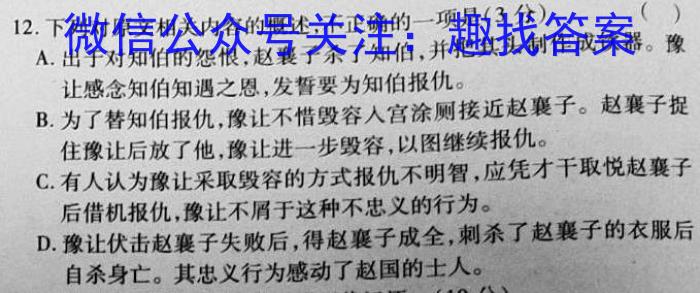 12. 下列对原文相关内容的概述,不正确的一项是(3分) ( )
微信公众号关注：趣找答案
A. 出于对知伯的怨恨,赵襄子杀了知伯,并把其头制作成酒器。豫
让感念知伯知遇之恩,发誓要为知伯报仇。
B. 为了替知伯报仇,豫让不惜毁容入宫涂厕接近赵襄子。赵襄子捉
住豫让后放了他,豫让进一步毁容,以图继续报仇。
C. 有人认为豫让采取毁容的方式报仇不明智,应凭才干取悦赵襄子
后借机报仇,豫让不屑于这种不忠义的行为。
D. 豫让伏击赵襄子失败后,得赵襄子成全,刺杀了赵襄子的衣服后
自杀身亡。其忠义行为感动了赵国的士人。